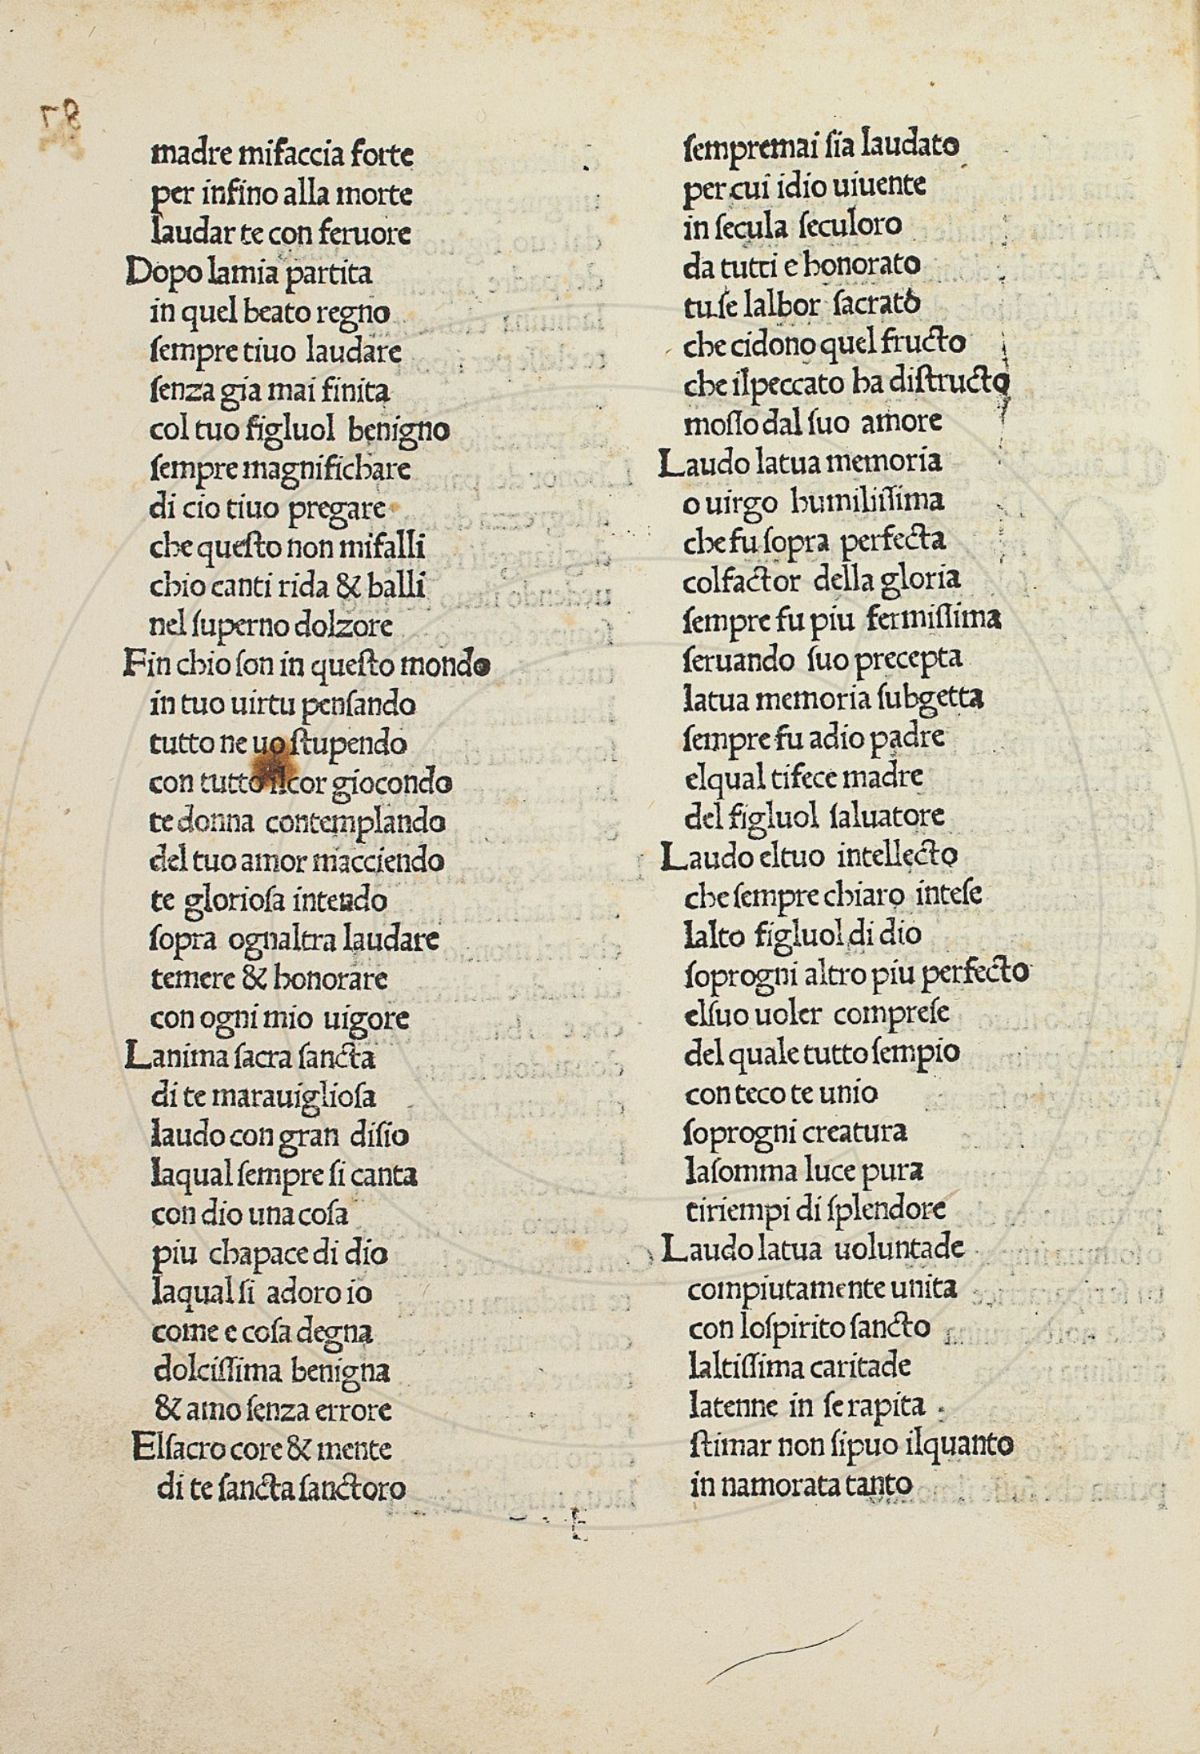 madre mifaccia forte
per infino alla morte
laudar te con feruore
Dopo lamia partita
in quel beato regno
ſempre tiuo laudare
ſenza gia mai finita
col tuo figluol benigno
ſempre magnifichare
di cio tiuo pregare
che queſto non mifalli
chio canti rida & balli
nel ſuperno dolzore
Fin chio ſon in queſto mondo
in tuo uirtu penſando
tutto ne uo ſtupendo
con tutto ilcor giocondo
te donna contemplando
del tuo amor macciendo
te glorioſa intendo
ſopra ognaltra laudare
temere & honorare
con ogni mio uigore
Lanima ſacra ſancta
di te marauiglioſa
laudo con gran diſio
laqual ſempre ſi canta
con dio una coſa
piu chapace di dio
laqual ſi adoro io
come e coſa degna
dolciſſima benigna
& amo ſenza errore
Elſacro core & mente
di te ſancta ſanctoro
ſempremai ſia laudato
per cui idio uiuente
in ſecula ſeculoro
da tutti e honorato
tu ſe lalbor ſacrato
che cidono quel fructo
che ilpeccato ha diſtructo
moſſo dal ſuo amore
Laudo latua memoria
o uirgo humiliſſima
che fu ſopra perfecta
colfactor della gloria
ſempre fu piu fermiſſima
ſeruando ſuo precepta
latua memoria ſubgetta
ſempre fu adio padre
elqual tifece madre
del figluol ſaluatore
Laudo eltuo intellecto
che ſempre chiaro inteſe
lalto figluol di dio
ſoprogni altro piu perfecto
elſuo uoler compreſe
del quale tutto ſempio
con teco te unio
ſoprogni creatura
laſomma luce pura
tiriempi di ſplendore
Laudo latua uoluntade
compiutamente unita
con loſpirito ſancto
laltiſſima caritade
latenne in ſe rapita
ſtimar non ſipuo ilquanto
in namorata tanto